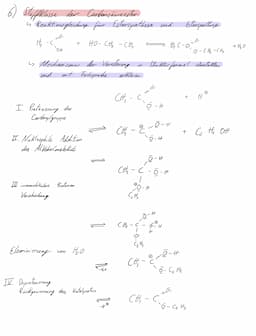 6) Stoffklasse der Carbonsäureester
↳ Reaktionsgleichung für Estersynthese und Esterspaltung
H₃C-C + HO-CH₂-CH₃ ⇌ H₃C-C O-CH₂-CH₃ + H₂O
↳ Mechanismus der Veresterung in Strukturformel darstellen
und mit Fachsprache erklären
CH₃-C O-H + H⁺
I. Protonierung der
Carboxylgruppe
⇌ CH₃-C O-H O-H + C₂H₅OH
II. Nukleophile Addition
des Alkoholmoleküls
⇌ CH₃-C-O-H
C₂H₅
III. Protonen
Verschiebung
⇌ CH₃-C
C₂H₅
Eliminierung von H₂O
⇌ -H₂O CH₃-C O-H O-C₂H₅
IV. Deprotonierung
Rückgewinnung des Katalysators
⇌ -H⁺ CH₃-C O-C₂H₅